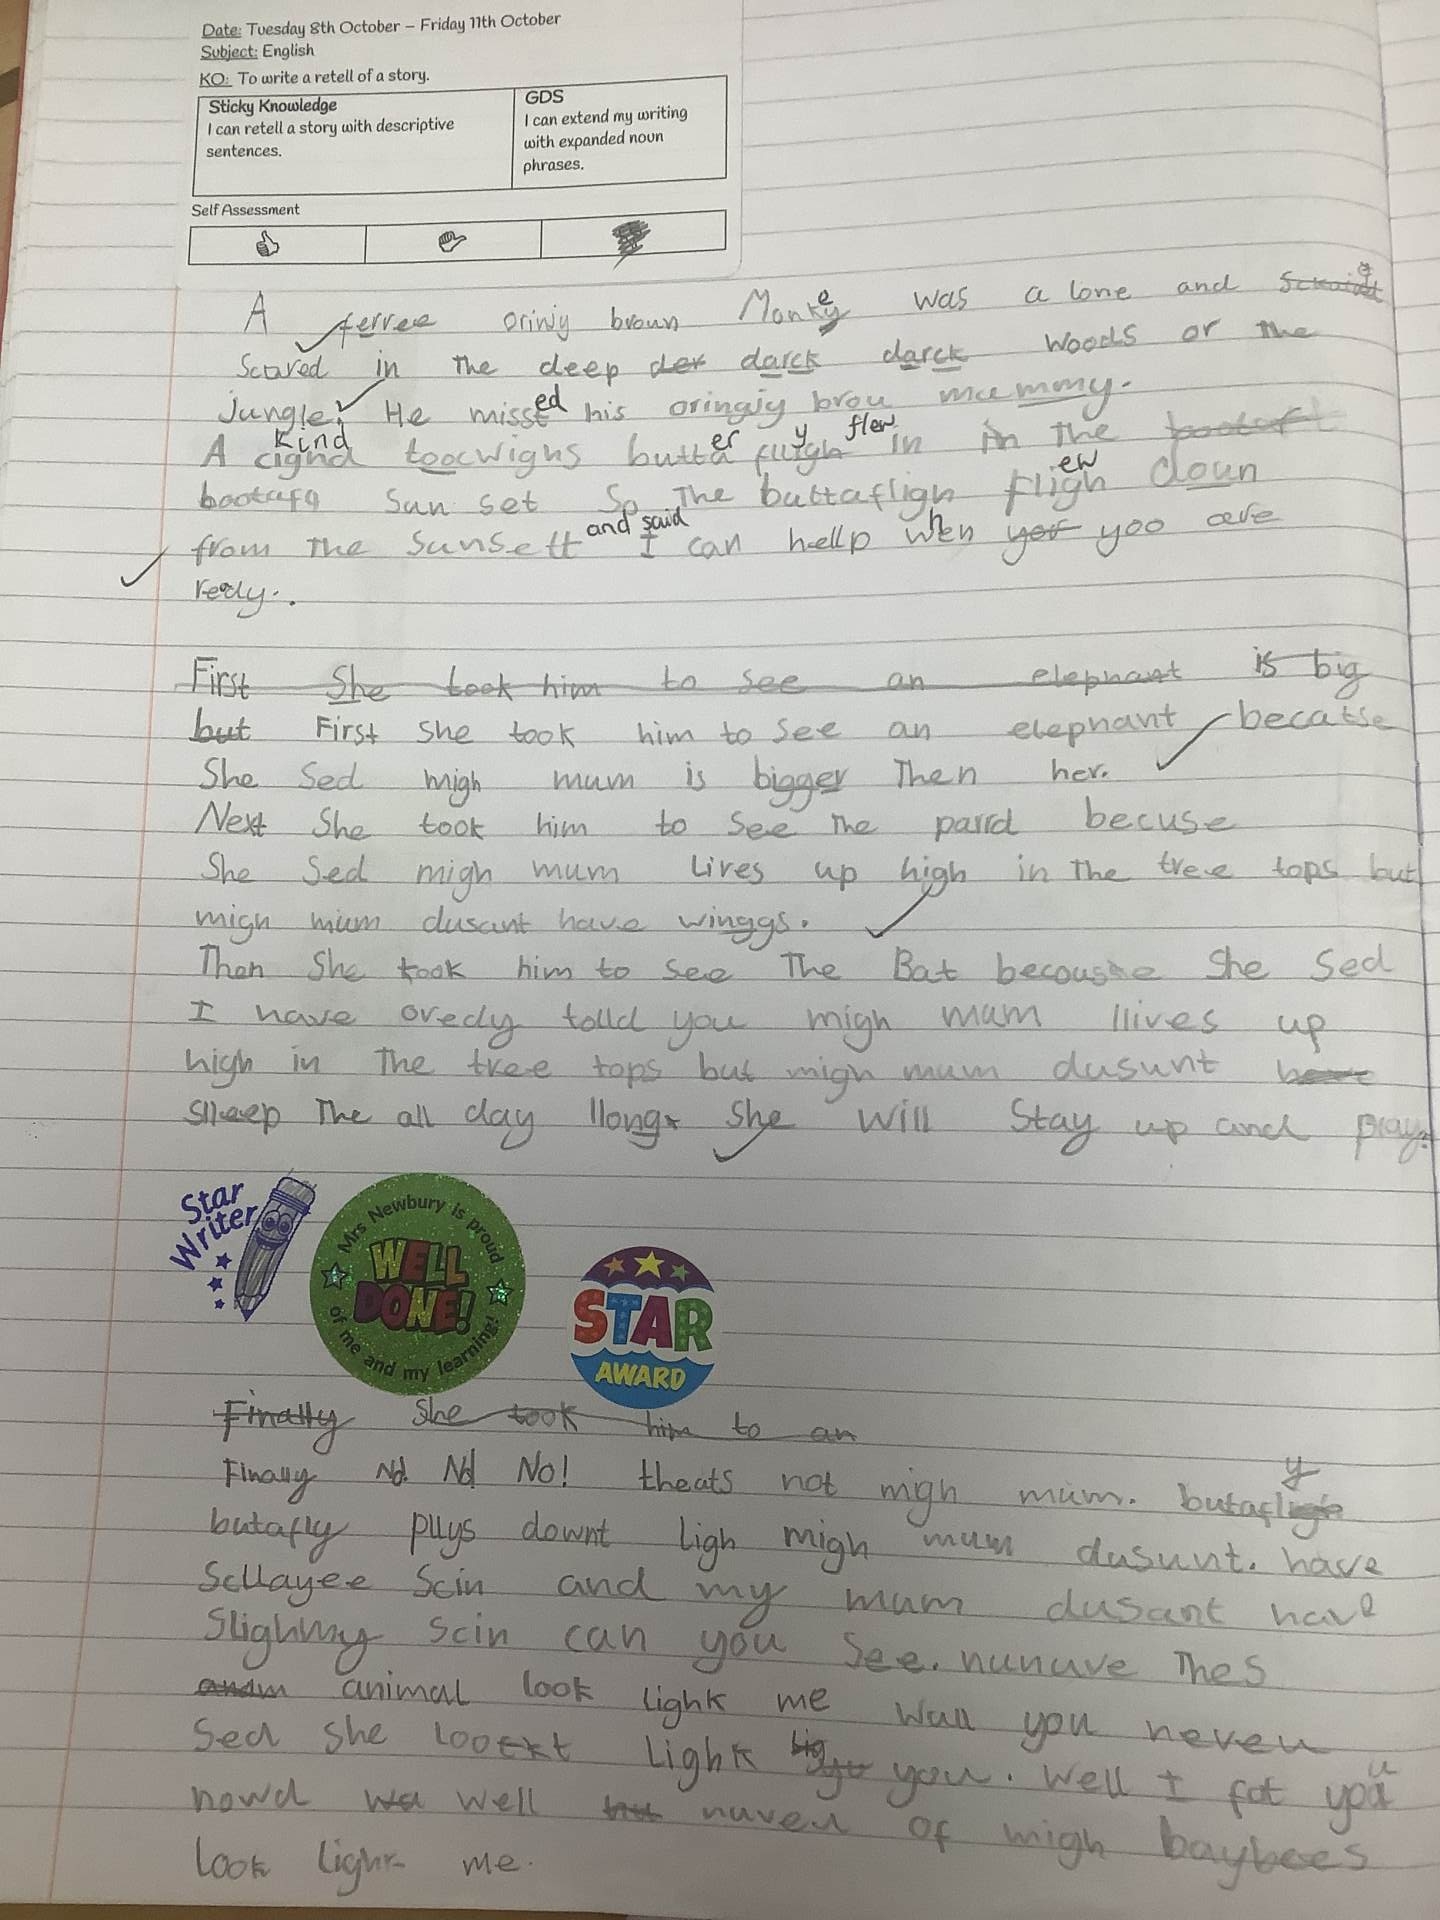 Date: Tuesday 8th October – Friday 11th October
Subject: English
KO: To write a retell of a story.
Sticky Knowledge
I can retell a story with descriptive
sentences.
GDS
I can extend my writing
with expanded noun
phrases.
Self Assessment
A ferree oriwjy broun Monkey was a lone and
Scared in The deep der darck darck woods or The
jungle. He missed his oringjy brou mummy.
A kind toocwighs butterfly flew in in The
bootafq Sun set So The buttafligh flew doun
from The Sunsett and said I can hellp when yor yoo are
redy.
First She took him to see an elephant is big
but First She took him to See an elephant becatse
She Sed migh mum is bigger Then her.
Next She took him to See The parrd becuse
She Sed migh mum Lives up high in The tree tops but
migh mum dusant have winggs.
Then She took him to See The Bat becouse She Sed
I have oredy tolld you migh mum llives up
high in The tree tops but migh mum dusunt have
Slleep The all day llong. She will Stay up and play.
Star
Writer
Mrs Newbury is proud
WELL
DONE!
of me and my learning!
STAR
AWARD
Finally She took him to an
Finally No! No! No! theats not migh mum. butafly
butafly pllys downt ligh migh mum dusunt. have
Scllayee Scin and my mum dusant have
Slighmy Scin can you See. nunuve Thes
anam animal look lighk me wall you neveu
Sed She loockt lighk you. Well I fot you
nowd wa well nuveu of migh baybees
look lighk me.